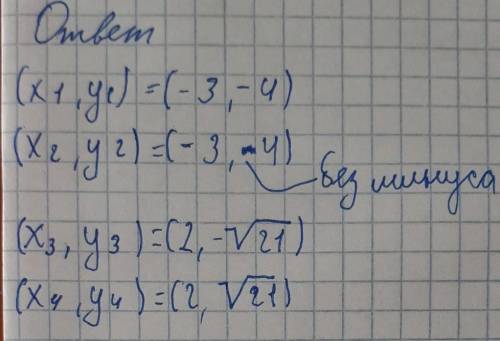 Ответ
(x1, y1) = (-3, -4)
(x2, y2) = (-3, -4)
без минуса
(x3, y3) = (2, -√21)
(x4, y4) = (2, √21)